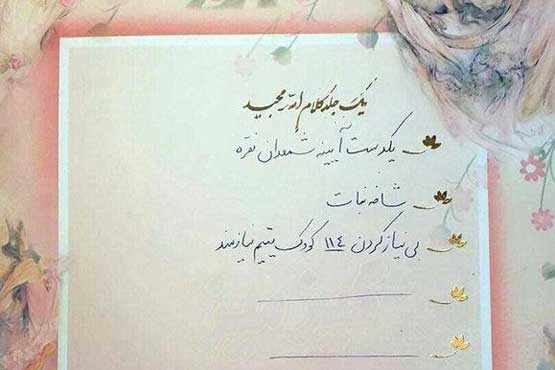 یک جلد کلام الله مجید
یکدست آیینه شمعدان نقره
شاخه نبات
بی نیاز کردن ١١٤ کودک یتیم نیازمند